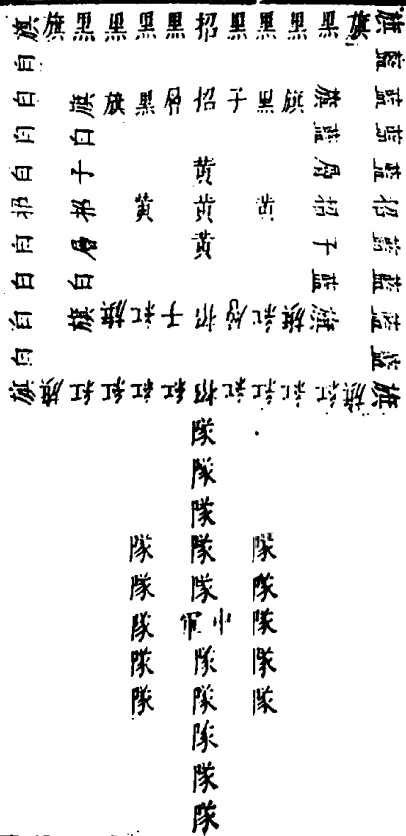 旗旗黑黑黑黑招黑黑黑黑旗旗
白 藍
白 旗旗黑層招子黑旗旗 藍
白 白 藍 藍
白 子 黄 層 藍
招 招 黄 黄 黄 招 招
白 層 黄 子 藍
白 白 藍 藍
白 旗旗紅子招層紅旗旗 藍
白 藍
旗旗紅紅紅紅招紅紅紅紅旗旗
隊
隊
隊
隊 隊 隊
隊 隊 隊
隊 軍中 隊
隊 隊 隊
隊 隊 隊
隊
隊
隊